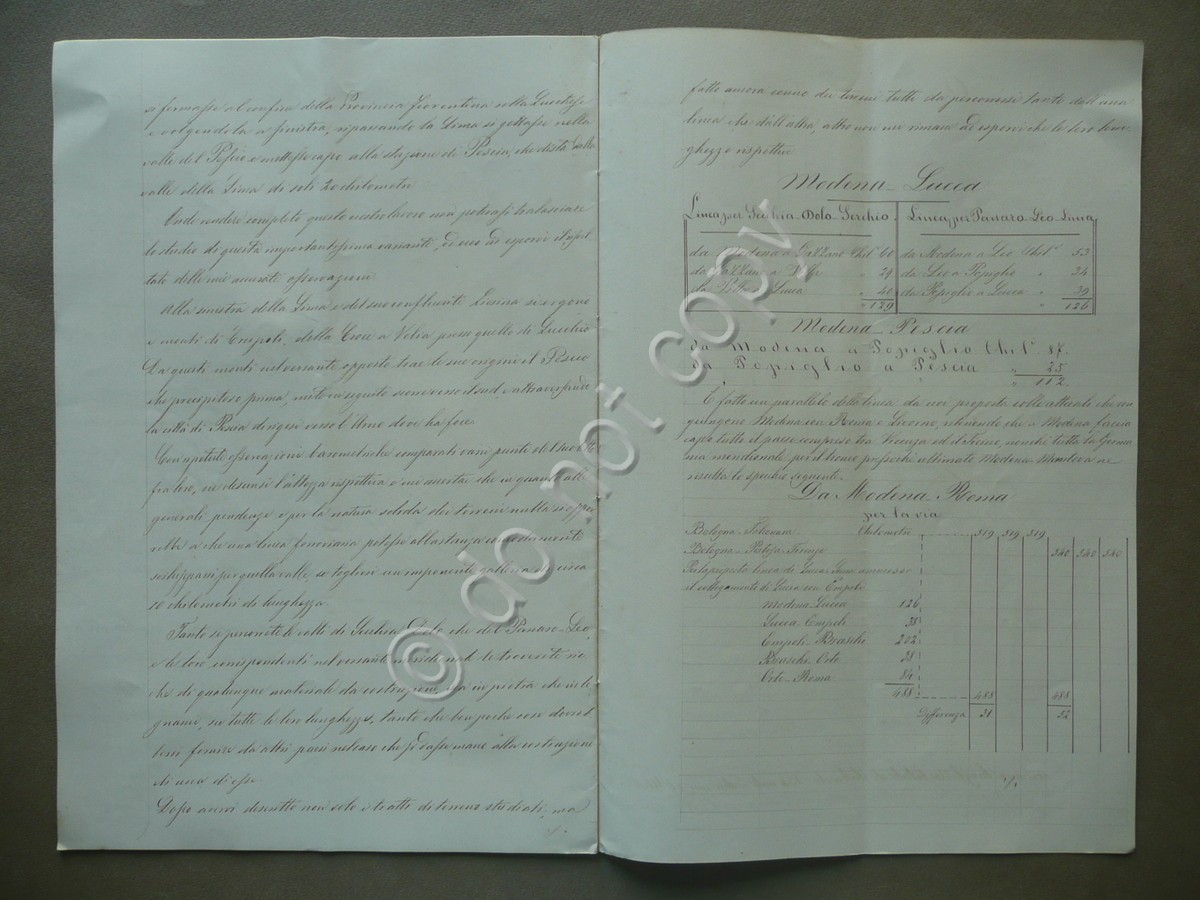 si formasse al confine della Provincia Fiorentina colla Lucchese
e volgendola a sinistra, ripassando la Lima si gettasse nella
valle del Pescio e mettesse capo alla stazione di Pescia, che dista dalla
valle della Lima di soli 20 chilometri
Onde rendere completo questo nostro lavoro non potevasi tralasciare
lo studio di questa importantissima variante, ed ora ad esporvi il risul-
tato delle mie accurate osservazioni
Alla sinistra della Lima e del suo confluente Liesina si ergono
i monti di Crespoli, della Croce a Veglia presso quello di Lucchio
Da questi monti nel versante opposto trae le sue origini il Pescio
che precipitoso prima, mite in seguito scorre verso il sud e attraversando
la città di Pescia dirigesi verso l'Arno dove ha foce
Con ripetute osservazioni barometriche comparati vari punti
fra loro, ne desunsi l'altezza rispettiva e mi accertai che in quanto alle
generali pendenze e per la natura solida dei terreni nulla si oppor-
rebbe a che una linea ferroviaria potesse abbastanza comodamente
svilupparsi per quella valle, se togliesi un'imponente galleria di circa
10 chilometri di lunghezza.
Tanto se percorrete le valli di Secchia Dolo che del Panaro-Leo,
e le loro corrispondenti nel versante meridionale le troverete ric-
che di qualunque materiale da costruzione, sia in pietra che in le-
gname, su tutte le loro lunghezze, tanto che ben poche cose dovreb-
bero fornire da altri paesi nel caso che si dasse mano alla costruzione
di una di esse.
Dopo avervi descritto non solo i tratti di terreno studiati, ma
fatto ancora cenno dei terreni tutti da percorrersi tanto dall'una
linea che dall'altra, altro non mi rimane ad esporvi che le loro lun-
ghezze rispettive
Modena - Lucca
Linea per Secchia - Dolo - Serchio Linea per Panaro - Leo - Lima
da Modena a Gazzano Chil.i 60 da Modena a Leo Chil.i 53
da Gazzano a " 29 da Leo a Popiglio " 34
da a Lucca " 40 da Popiglio a Lucca " 39
" 129 " 126
Modena - Pescia
da Modena a Popiglio Chil.i 87.
da Popiglio a Pescia " 25
" 112.
E fatto un parallelo della linea da noi proposta colle attuali che con
giungono Modena con Roma e Livorno, ritenendo che a Modena faccia
capo tutto il paese compreso tra Firenze ed il Ticino, nonché tutta la Germa
nia meridionale per il tronco pressoché ultimato Modena-Mantova ne
risulta lo specchio seguente.
Da Modena - Roma
per la via
Bologna - Chilometri 519 519 519
Bologna - Pistoja - Firenze 540 540 540
Per la proposta linea di
il collegamento di Lucca con Empoli
Modena - Lucca 126
Lucca - Empoli 38
Empoli - 202
Orte 38
Orte - Roma 84
488 488 488
Differenza 31 52